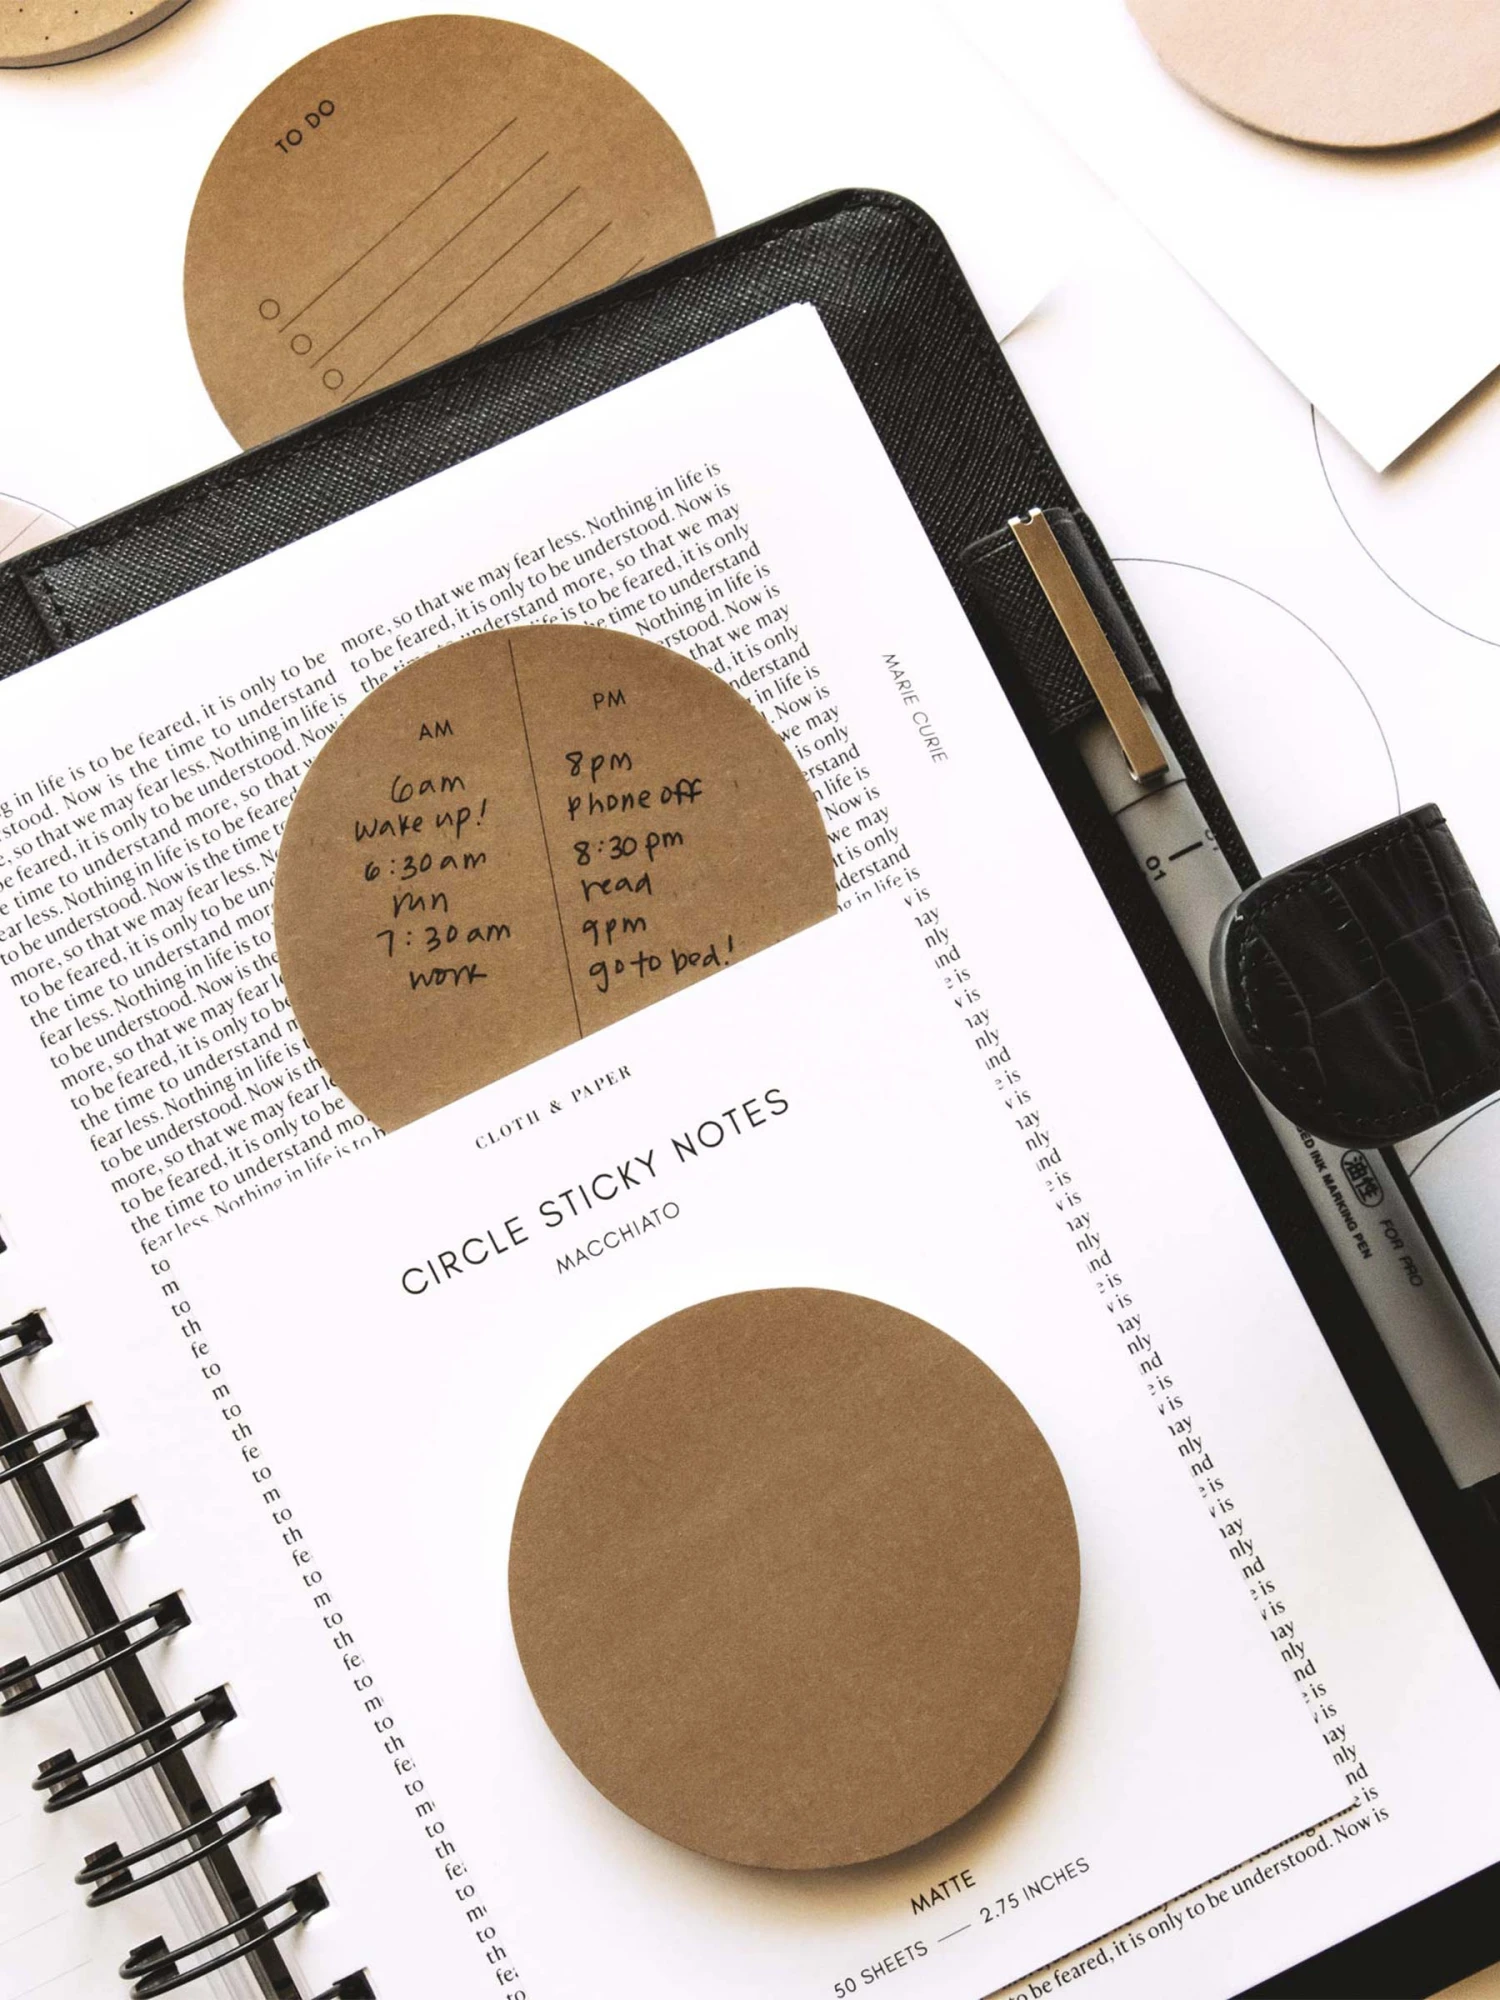 TO DO
more, so that we may fear less. Nothing in life is
to be feared, it is only to be understood. Now is
the understand more, so that we may
life is to be feared, it is only
time to understand
Nothing in life is
Now is
that we may
it is only
in life is
Now is
we may
is only
life is
Now is
we may
it is only
in life is
in life is to be feared, it is only to be
Now is the time to understand
so that we may fear less. Nothing in life is
feared, it is only to be understood. Now
time to understand more, so that
less. Nothing in life is to be feared
to be understood. Now is the time
more, so that we may fear less.
to be feared, it is only to be
the time to understand
fear less. Nothing in life is to
to be understood. Now is the
more, so that we may fear
to be feared, it is only to be
the time to understand
fear less. Nothing in life is
to be understood. Now is the
more, so that we may fear
to be feared, it is only to be
the time to understand
fear less. Nothing in life is to
MARIE CURIE
AM
6am
wake up!
6:30am
run
7:30am
work
PM
8pm
phone off
8:30pm
read
9pm
go to bed!
01
INK MARKING PEN
油性
FOR PRO
CLOTH & PAPER
CIRCLE STICKY NOTES
MACCHIATO
MATTE
50 SHEETS — 2.75 INCHES
to be feared, it is only to be understood. Now is